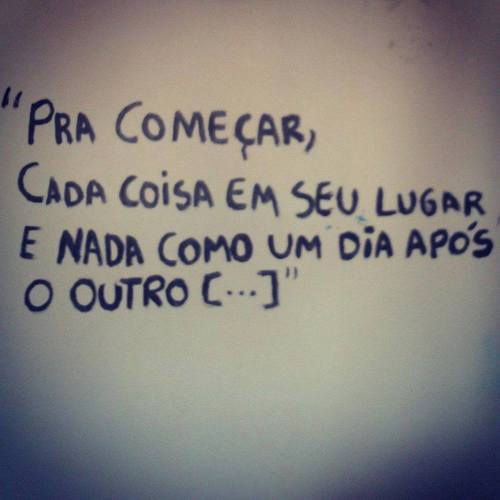 "PRA COMEÇAR,
CADA COISA EM SEU LUGAR
E NADA COMO UM DIA APÓS
O OUTRO [...]"